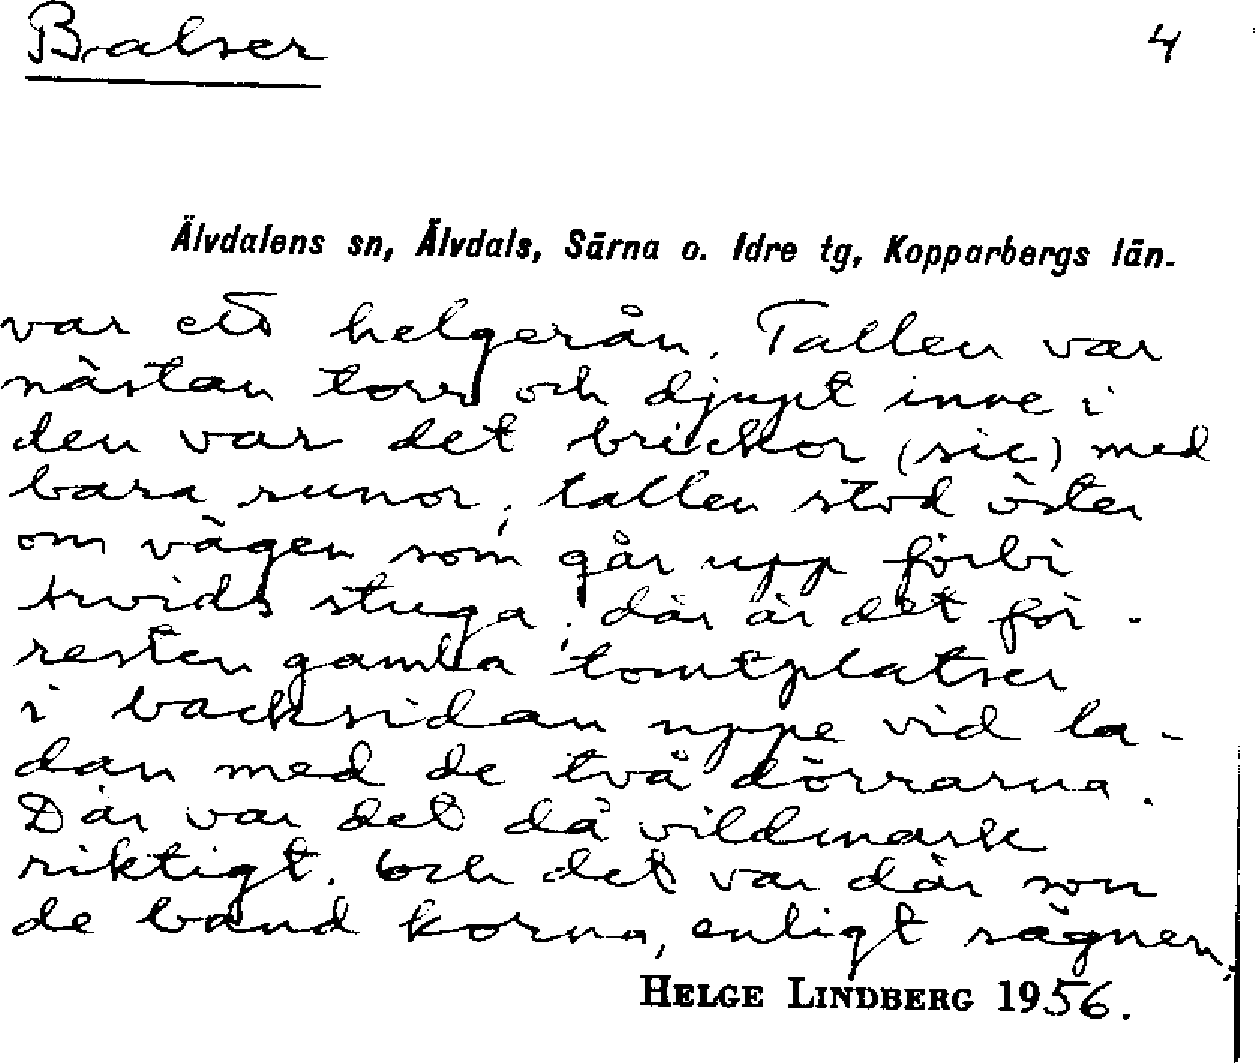 Balser 4
Älvdalens sn, Älvdals, Särna o. Idre tg, Kopparbergs län.
var ett helgerån. Tallen var
nästan torr och djupt inne i
den var det brickor (sic) med
bara runor; tallen stod öster
om vägen som går upp förbi
Arvids stuga; där är det för-
resten gamla tomtplatser
i backsidan uppe vid la-
dan med de två dörrarna.
Där var det då vildmark
riktigt. Och det var där som
de band korna, enligt sägnen;
HELGE LINDBERG 1956.